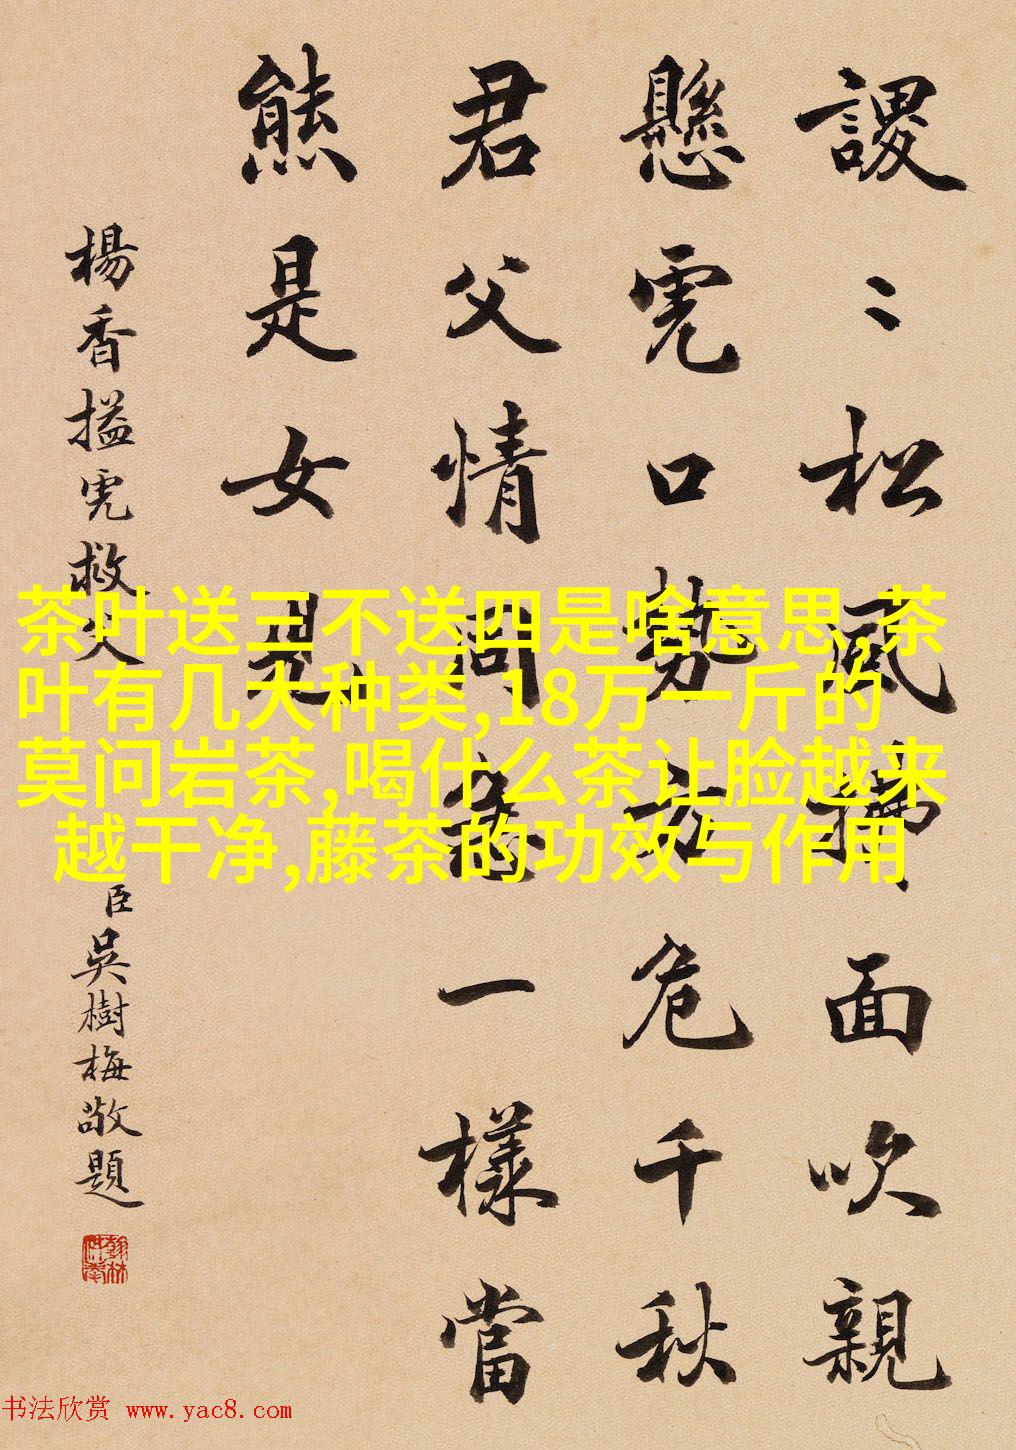 謖〻松風拂面吹親
懸虎口勢方危千秋
君父情同急一樣當
熊是女兒
楊香搤虎救父
臣吳樹梅敬題
茶叶送三不送四是啥意思,茶
叶有几大种类,18万一斤的
莫问岩茶,喝什么茶让脸越来
越干净,藤茶的功效与作用
书法欣赏 www.yac8.com